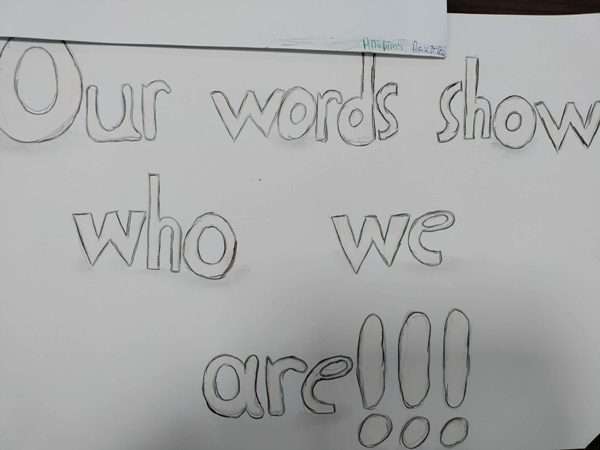 Our words show
who we
are!!!